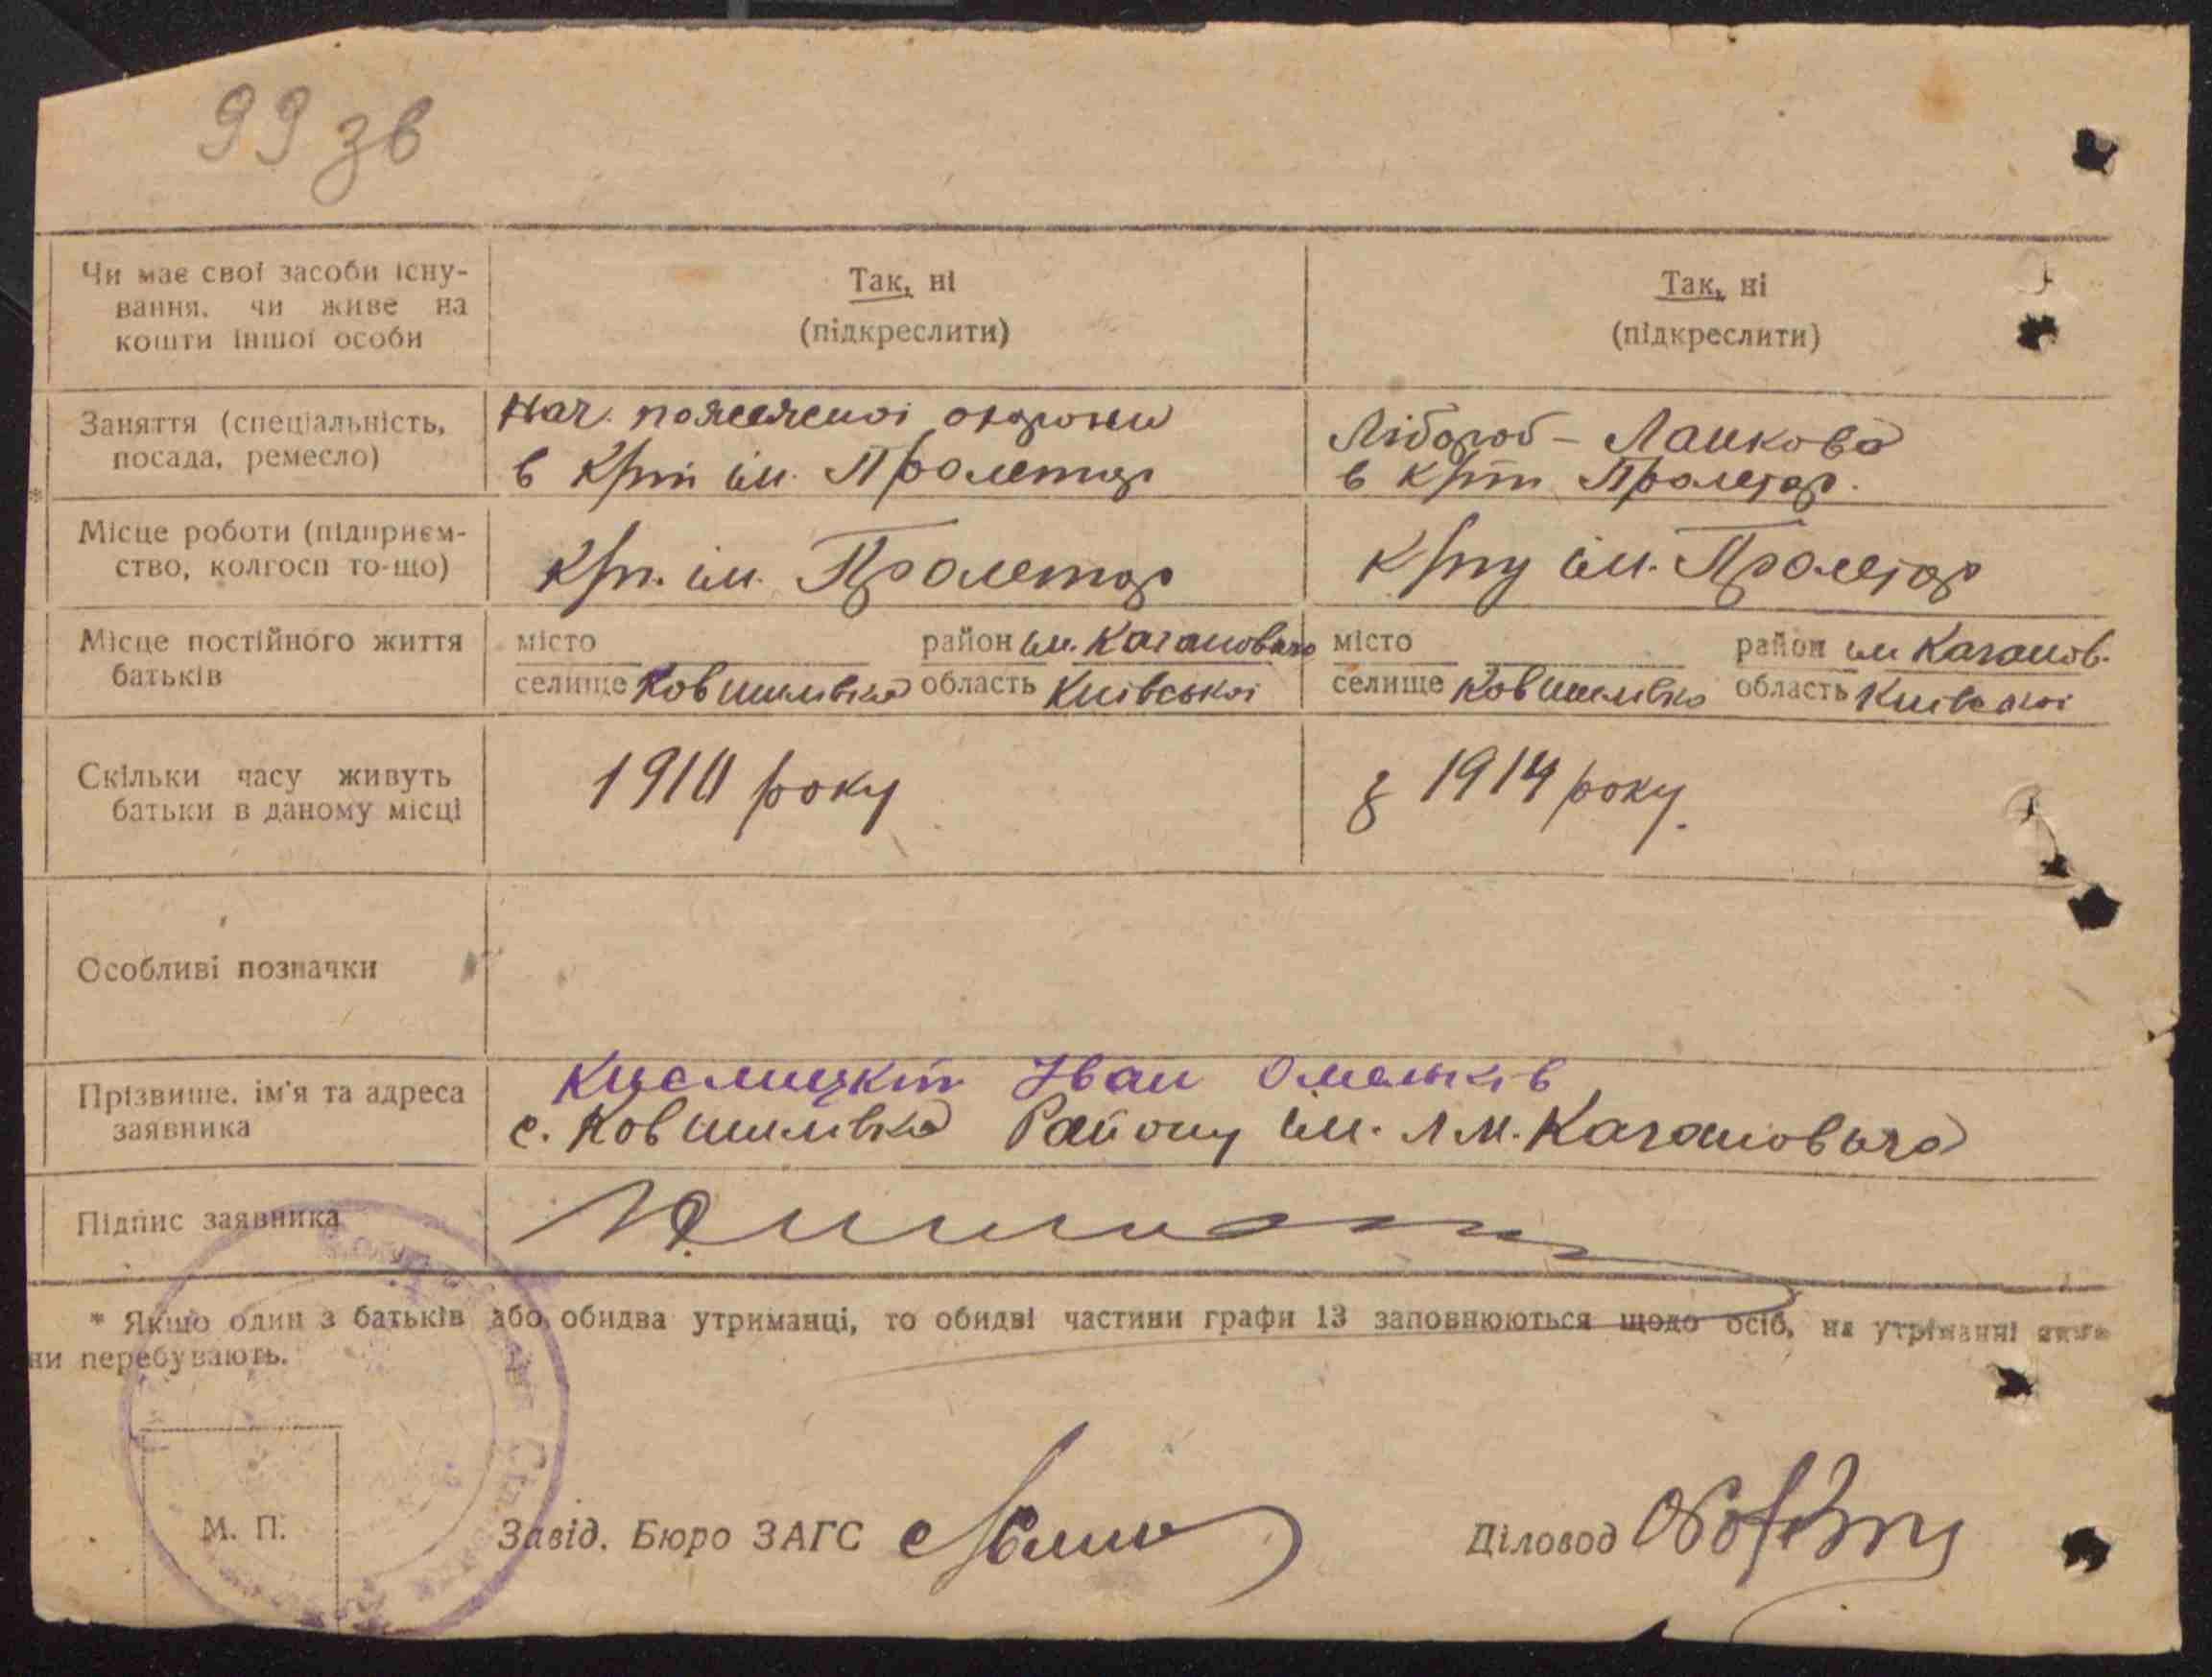 99 зв
Чи має свої засоби існу-
вання, чи живе на
кошти іншої особи
Так, ні
(підкреслити)
Так, ні
(підкреслити)
Заняття (спеціальність,
посада, ремесло)
Нач. пожежної охорони
в крт ім. Пролетар
Лібороб - Ланкова
в крт Пролетар.
Місце роботи (підприєм-
ство, колгосп то-що)
крт. ім. Пролетар
крту ім. Пролетар
Місце постійного життя
батьків
місто район ім. Кагановича
селище Ковшилівка область Київської
місто район ім Каганов.
селище Ковшилівка область Київської
Скільки часу живуть
батьки в даному місці
1910 року
з 1914 року.
Особливі позначки
Прізвище, ім'я та адреса
заявника
Іван Омельків
с. Ковшилівка Району ім. Л М. Кагановича
Підпис заявника
* Якщо один з батьків або обидва утриманці, то обидві частини графи 13 заповнюються щодо осіб, на утриманні яких
ни перебувають.
М. П.
Завід. Бюро ЗАГС
Діловод